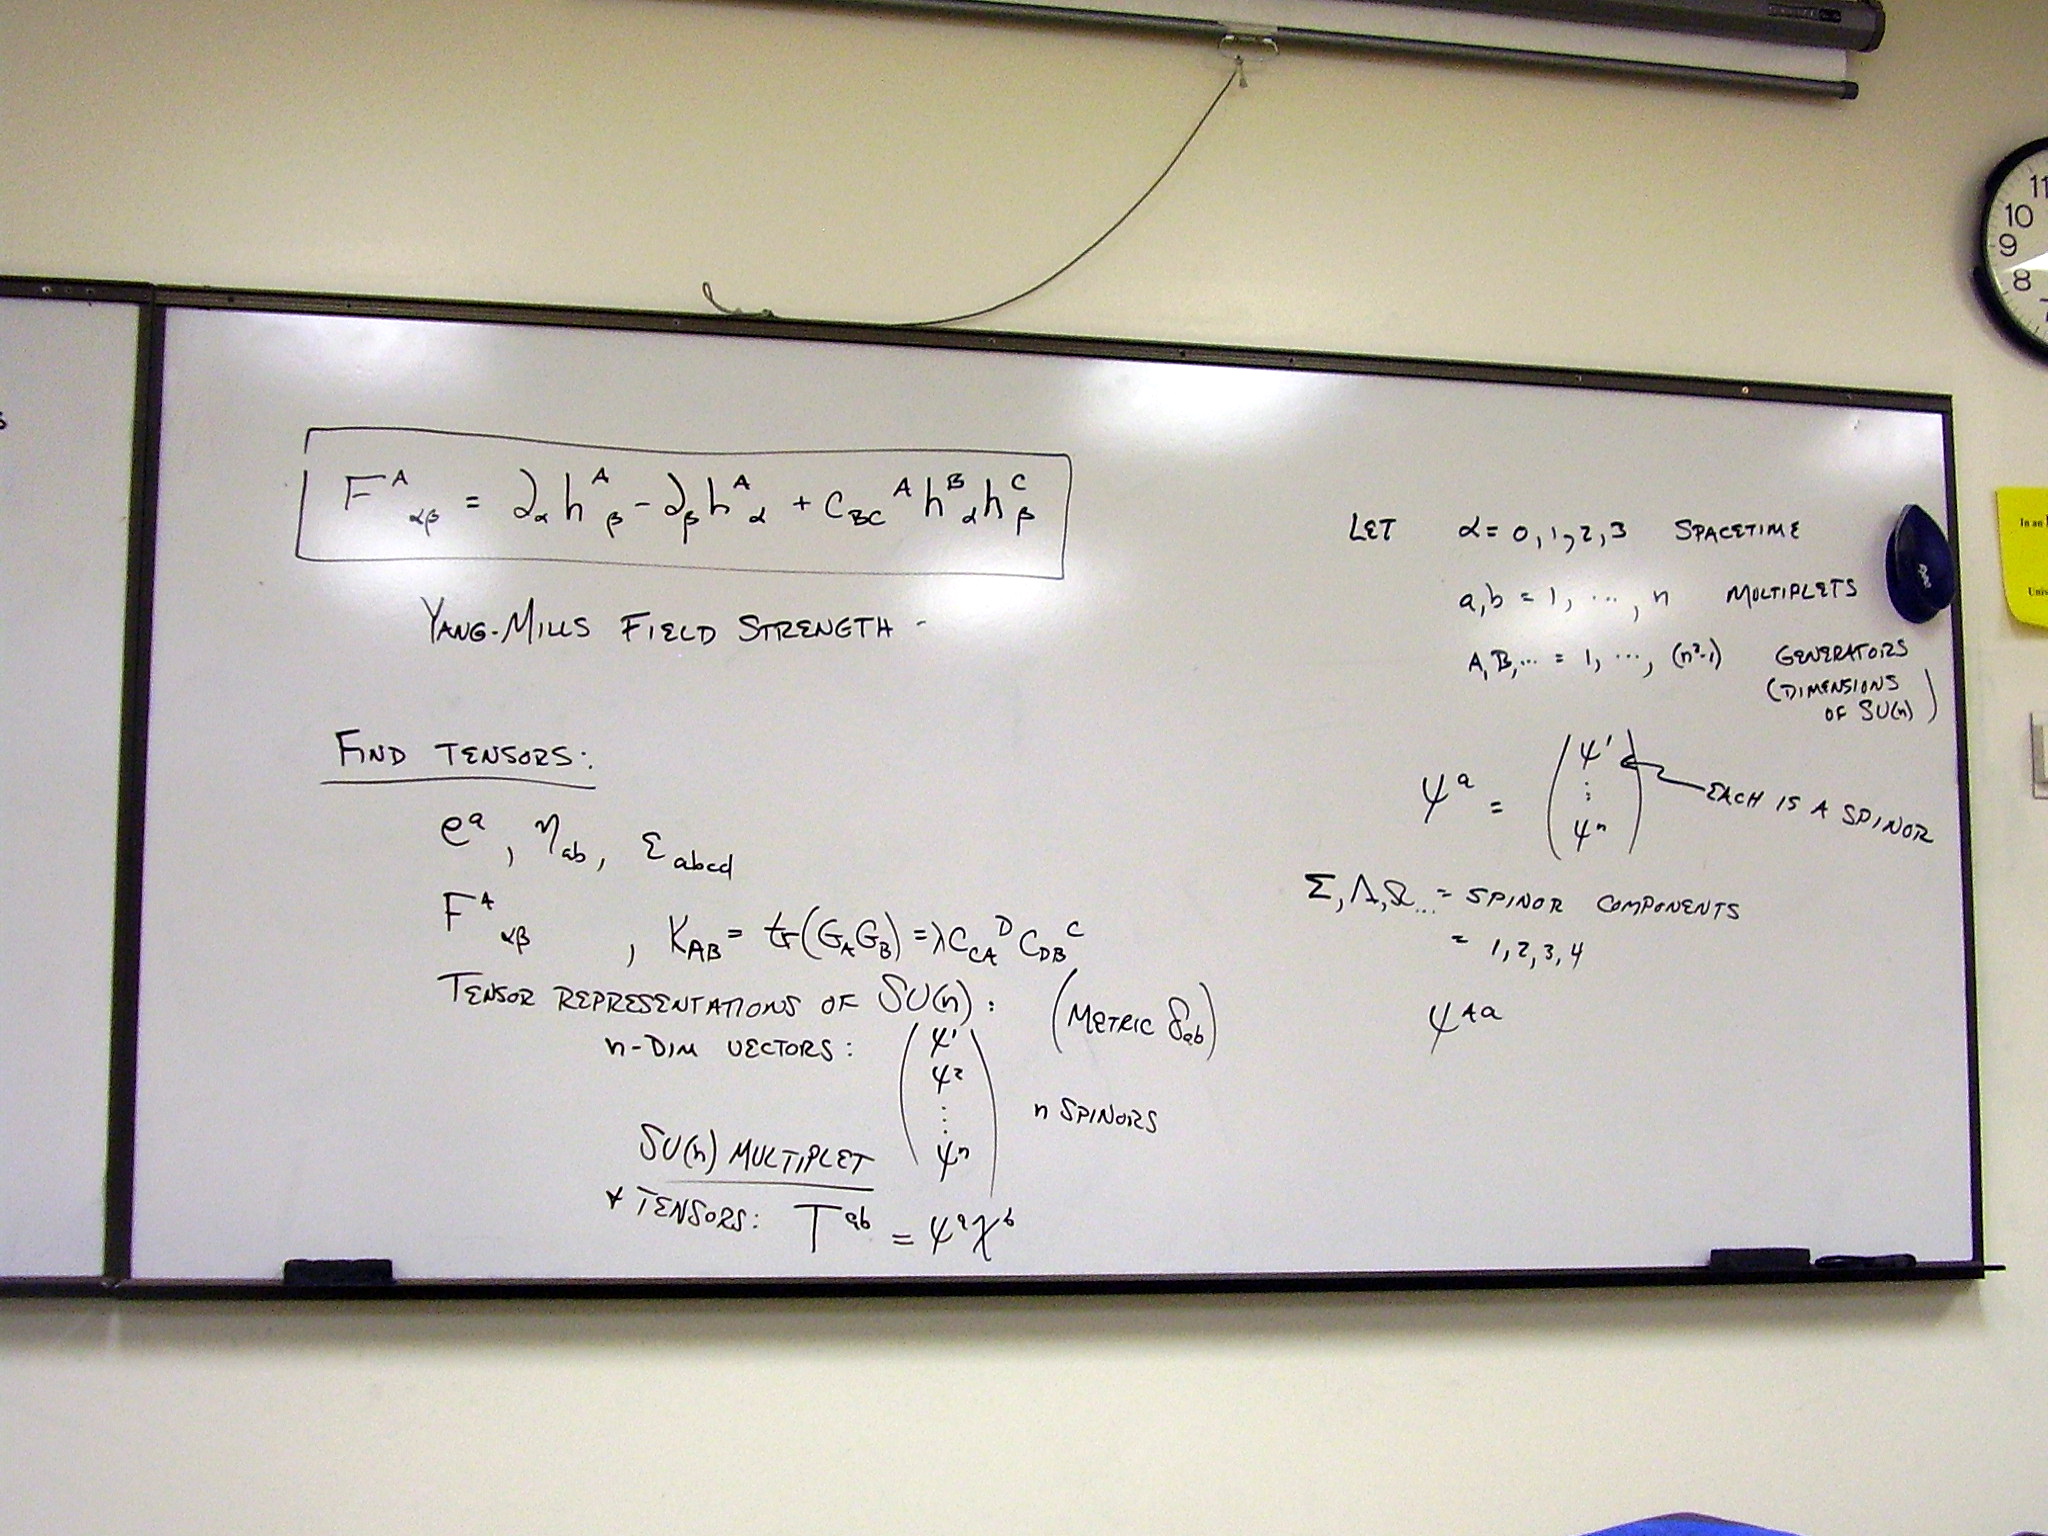 F^A_αβ = ∂_α h^A_β - ∂_β h^A_α + c_BC^A h^B_α h^C_β
YANG-MILLS FIELD STRENGTH -
FIND TENSORS:
e^a, η_ab, ε_abcd
F^A_αβ , K_AB = tr(G_A G_B) = λ c_CA^D c_DB^C
TENSOR REPRESENTATIONS OF SU(n): (METRIC δ_ab)
n-DIM VECTORS: (ψ^1
ψ^2
⋮
ψ^n) n SPINORS
SU(n) MULTIPLET
+ TENSORS: T^ab = ψ^a χ^b
LET α = 0,1,2,3 SPACETIME
a,b = 1, ..., n MULTIPLETS
A,B,... = 1, ..., (n²-1) GENERATORS
(DIMENSIONS
OF SU(n))
ψ^a = (ψ^1
⋮
ψ^n) EACH IS A SPINOR
Σ,Λ,Ω... = SPINOR COMPONENTS
= 1,2,3,4
ψ^Aa
11
10
9
8
7
In an
Unis